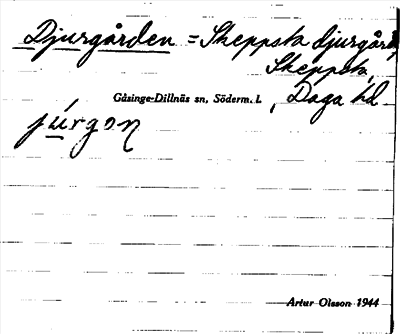 Djurgården = Skeppsta djurgård
Skeppsta,
Gåsinge-Dillnäs sn, Söderm. l. , Daga hd
júrgɔn
Artur Olsson 1944